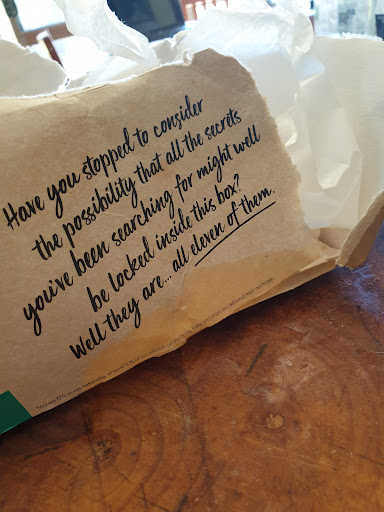 Have you stopped to consider
the possibility that all the secrets
you've been searching for might well
be locked inside this box?
Well they are... all eleven of them.